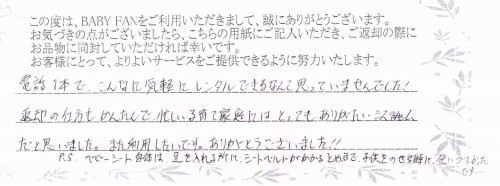 この度は、BABY FANをご利用いただきまして、誠にありがとうございます。
お気づきの点がございましたら、こちらの用紙にご記入いただき、ご返却の際に
お品物に同封していただければ幸いです。
お客様にとって、よりよいサービスをご提供できるように努力いたします。
電話1本で こんなに気軽に レンタルできるなんて思っていませんでした!
返却の仕方も かんたんで 忙しい子育て家庭には とってもありがたい システム
だと思いました。また利用したいです。ありがとうございました!!
P.S ベビーシート自体は 足を入れる所に、シートベルトがかかるため、子供をのせる時に、使いづらかった
です